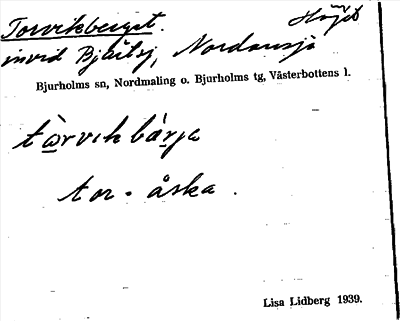 Torvikberget. Höjd
invid Bjärtsj, Nordansjö
Bjurholms sn, Nordmaling o. Bjurholms tg, Västerbottens l.
tòrvikbárja
tor - åska.
Lisa Lidberg 1939.